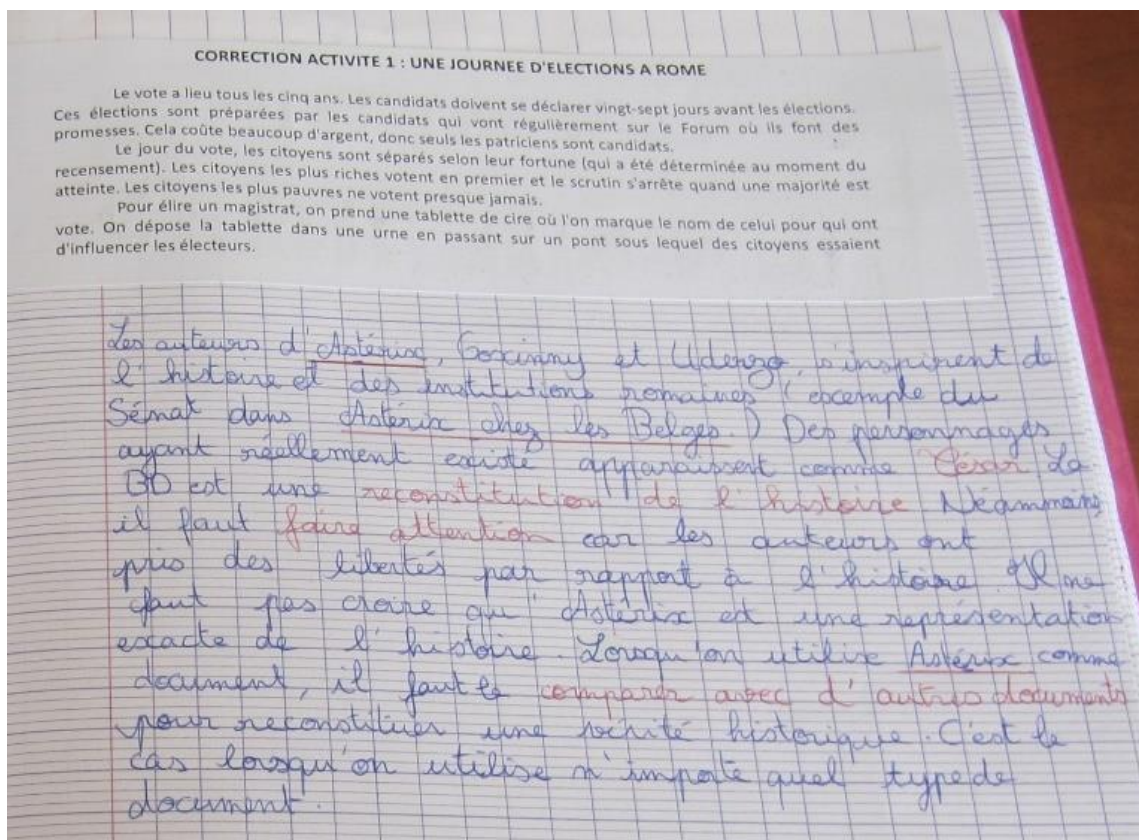 CORRECTION ACTIVITE 1 : UNE JOURNEE D'ELECTIONS A ROME
Le vote a lieu tous les cinq ans. Les candidats doivent se déclarer vingt-sept jours avant les élections.
Ces élections sont préparées par les candidats qui vont régulièrement sur le Forum où ils font des
promesses. Cela coûte beaucoup d'argent, donc seuls les patriciens sont candidats.
Le jour du vote, les citoyens sont séparés selon leur fortune (qui a été déterminée au moment du
recensement). Les citoyens les plus riches votent en premier et le scrutin s'arrête quand une majorité est
atteinte. Les citoyens les plus pauvres ne votent presque jamais.
Pour élire un magistrat, on prend une tablette de cire où l'on marque le nom de celui pour qui ont
vote. On dépose la tablette dans une urne en passant sur un pont sous lequel des citoyens essaient
d'influencer les électeurs.
Les auteurs d'Astérix, Gosciny et Uderzo, s'inspirent de
l'histoire et des institutions romaines (exemple du
Sénat dans Astérix chez les Belges.) Des personnages
ayant réellement existé apparaissent comme César. La
BD est une reconstitution de l'histoire Néanmoins,
il faut faire attention car les auteurs ont
pris des libertés par rapport à l'histoire. Il ne
faut pas croire qu'Astérix est une représentation
exacte de l'histoire. Lorsqu'on utilise Astérix comme
document, il faut le comparer avec d'autres documents
pour reconstituer une vérité historique. C'est le
cas lorsqu'on utilise n'importe quel type de
document.